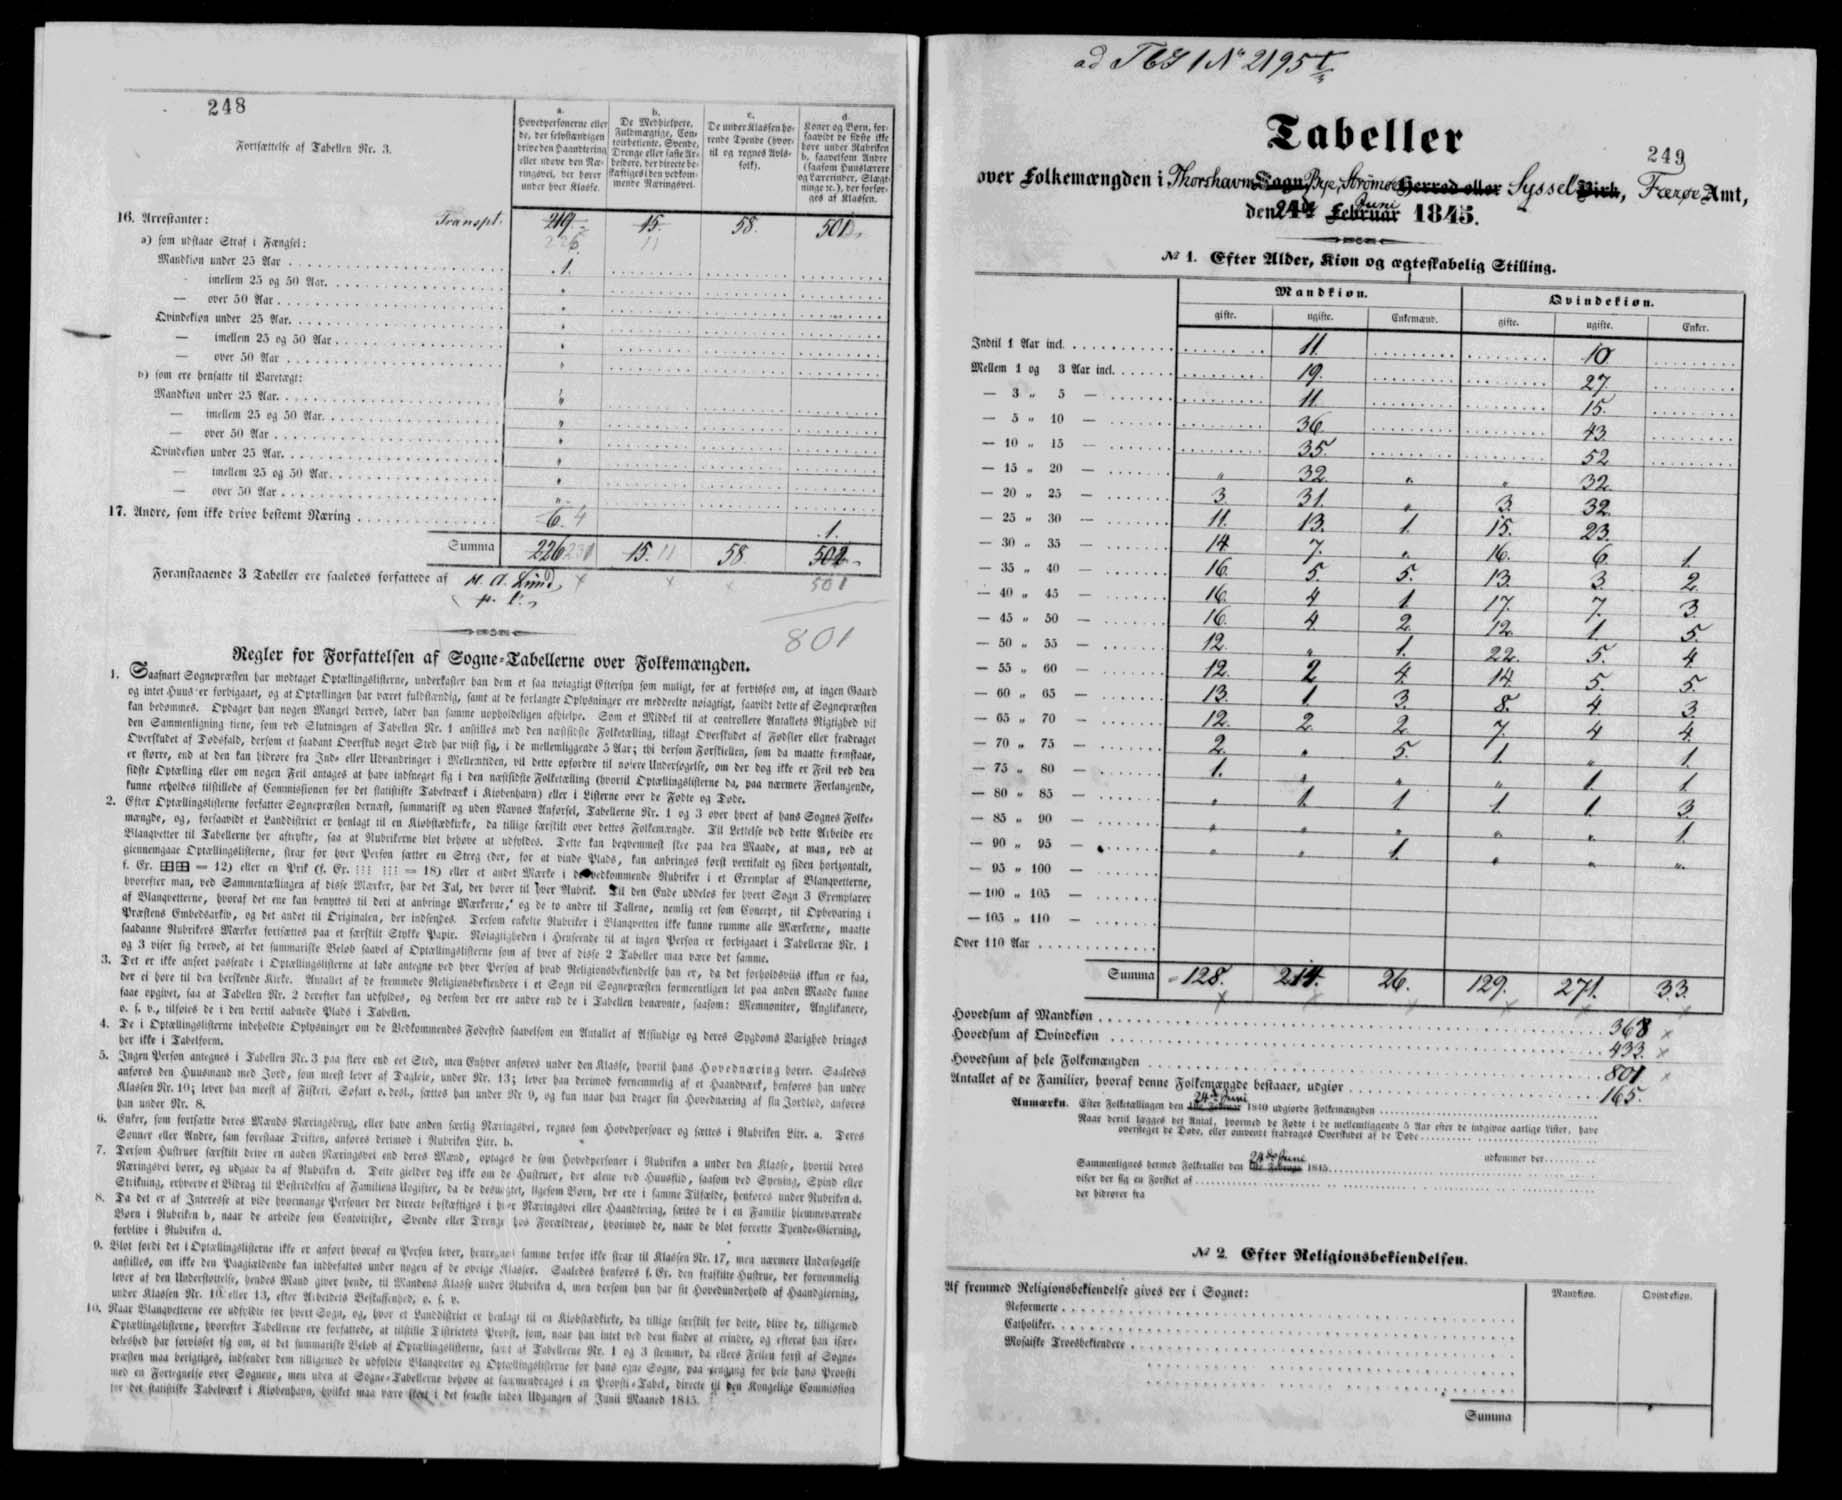 248
Fortsættelse af Tabellen Nr. 3.
a. Hovedpersonerne eller de, der selvstændigen drive den Haandtering eller udøve den Næringsvei, der hører under hver Klasse.
b. De Medhielpere, Fuldmægtige, Contoirbetiente, Svende, Drenge eller faste Arbeidere, der directe beskæftiges i den vedkommende Næringsvei.
c. De under Klassen hørende Tyende (hvortil og regnes Avlsfolk).
d. Koner og Børn, forsaavidt de sidste ikke høre under Rubriken b, saavelsom Andre (saasom Huuslærere og Lærerinder, Slægtninge ɾc.), der forsørges af Klassen.
16. Arrestanter: Transpt. 219. 15. 58. 501
226 11
a) som udstaae Straf i Fængsel:
Mandkiøn under 25 Aar 1.
imellem 25 og 50 Aar. "
— over 50 Aar "
Qvindekiøn under 25 Aar. "
— imellem 25 og 50 Aar "
— over 50 Aar "
b) som ere hensatte til Varetægt:
Mandkiøn under 25 Aar. "
— imellem 25 og 50 Aar. "
— over 50 Aar "
Qvindekiøn under 25 Aar. "
— imellem 25 og 50 Aar. "
— over 50 Aar "
17. Andre, som ikke drive bestemt Næring 6. 4 1.
Summa 226 231 15. 11 58. 502
Foranstaaende 3 Tabeller ere saaledes forfattede af H. A. Lund, 501
p. t.
801
Regler for Forfattelsen af Sogne-Tabellerne over Folkemængden.
1. Saasnart Sognepræsten har modtaget Optællingslisterne, underkaster han dem et saa nøiagtigt Eftersyn som muligt, for at forvisses om, at ingen Gaard
og intet Huus er forbigaaet, og at Optællingen har været fuldstændig, samt at de forlangte Oplysninger ere meddeelte nøiagtigt, saavidt dette af Sognepræsten
kan bedømmes. Opdager han nogen Mangel derved, lader han samme uopholdeligen afhielpe. Som et Middel til at controllere Antallets Rigtighed vil
den Sammenligning tiene, som ved Slutningen af Tabellen Nr. 1 anstilles med den næstsidste Folketælling, tillagt Overskudet af Fødsler eller fradraget
Overskudet af Dødsfald, dersom et saadant Overskud noget Sted har viist sig, i de mellemliggende 5 Aar; thi dersom Forskiellen, som da maatte fremstaae,
er større, end at den kan hidrøre fra Ind- eller Udvandringer i Mellemtiden, vil dette opfordre til nøiere Undersøgelse, om der dog ikke er Feil ved den
sidste Optælling eller om nogen Feil antages at have indsneget sig i den næstsidste Folketælling (hvortil Optællingslisterne da, paa nærmere Forlangende,
kunne erholdes tilstillede af Commissionen for det statistiske Tabelværk i Kiøbenhavn) eller i Listerne over de Fødte og Døde.
2. Efter Optællingslisterne forfatter Sognepræsten dernæst, summarisk og uden Navnes Anførsel, Tabellerne Nr. 1 og 3 over hvert af hans Sognes Folkemængde,
og, forsaavidt et Landdistrict er henlagt til en Kiøbstædkirke, da tillige særskilt over dettes Folkemængde. Til Lettelse ved dette Arbeide ere
Blanqvetter til Tabellerne her aftrykte, saa at Rubrikerne blot behøve at udfyldes. Dette kan beqvemmest skee paa den Maade, at man, ved at
giennemgaae Optællingslisterne, strax for hver Person sætter en Streg (der, for at vinde Plads, kan anbringes først vertikalt og siden horizontalt,
f. Ex. ⊞⊞ = 12) eller en Prik (f. Ex. ⁝⁝⁝ ⁝⁝⁝ = 18) eller et andet Mærke i de vedkommende Rubriker i et Exemplar af Blanqvetterne,
hvorefter man, ved Sammentællingen af disse Mærker, har det Tal, der hører til hver Rubrik. Til den Ende uddeles for hvert Sogn 3 Exemplarer
af Blanqvetterne, hvoraf det ene kan benyttes til deri at anbringe Mærkerne, og de to andre til Tallene, nemlig eet som Concept, til Opbevaring i
Præstens Embedsarkiv, og det andet til Originalen, der indsendes. Dersom enkelte Rubriker i Blanqvetten ikke kunne rumme alle Mærkerne, maatte
saadanne Rubrikers Mærker fortsættes paa et særskilt Stykke Papir. Nøiagtigheden i Henseende til at ingen Person er forbigaaet i Tabellerne Nr. 1
og 3 viser sig derved, at det summariske Beløb saavel af Optællingslisterne som af hver af disse 2 Tabeller maa være det samme.
3. Det er ikke anseet passende i Optællingslisterne at lade antegne ved hver Person af hvad Religionsbekiendelse han er, da det forholdsviis ikkun er faa,
der ei høre til den herskende Kirke. Antallet af de fremmede Religionsbekiendere i et Sogn vil Sognepræsten formeentligen let paa anden Maade kunne
faae opgivet, saa at Tabellen Nr. 2 derefter kan udfyldes, og dersom der ere andre end de i Tabellen benævnte, saasom: Memnoniter, Anglikanere,
o. s. v., tilføies de i den dertil aabnede Plads i Tabellen.
4. De i Optællingslisterne indeholdte Oplysninger om de Vedkommendes Fødested saavelsom om Antallet af Afsindige og deres Sygdoms Varighed bringes
her ikke i Tabelform.
5. Ingen Person antegnes i Tabellen Nr. 3 paa flere end eet Sted, men Enhver anføres under den Klasse, hvortil hans Hovednæring hører. Saaledes
anføres den Huusmand med Jord, som meest lever af Dagleie, under Nr. 13; lever han derimod fornemmelig af et Haandværk, henføres han under
Klassen Nr. 10; lever han meest af Fiskeri, Søfart o. desl., sættes han under Nr. 9, og kun naar han drager sin Hovednæring af sin Jordlod, anføres
han under Nr. 8.
6. Enker, som fortsætte deres Mænds Næringsbrug, eller have anden særlig Næringsvei, regnes som Hovedpersoner og sættes i Rubriken Litr. a. Deres
Sønner eller Andre, som forestaae Driften, anføres derimod i Rubriken Litr. b.
7. Dersom Hustruer særskilt drive en anden Næringsvei end deres Mænd, optages de som Hovedpersoner i Rubriken a under den Klasse, hvortil deres
Næringsvei hører, og udgaae da af Rubriken d. Dette gielder dog ikke om de Hustruer, der alene ved Huusflid, saasom ved Spening, Spind eller
Strikning, erhverve et Bidrag til Bestridelsen af Familiens Udgifter, da de desuagtet, ligesom Børn, der ere i samme Tilfælde, henføres under Rubriken d.
8. Da det er af Interesse at vide hvormange Personer der directe beskæftiges i hver Næringsvei eller Haandtering, sættes de i en Familie hiemmeværende
Børn i Rubriken b, naar de arbeide som Contoirister, Svende eller Drenge hos Forældrene, hvorimod de, naar de blot forrette Tyende-Gierning,
forblive i Rubriken d.
9. Blot fordi det i Optællingslisterne ikke er anført hvoraf en Person lever, henregnes samme derfor ikke strax til Klassen Nr. 17, men nærmere Undersøgelse
anstilles, om ikke den Paagiældende kan indbefattes under nogen af de øvrige Klasser. Saaledes henføres f. Ex. den fraskilte Hustrue, der fornemmelig
lever af den Understøttelse, hendes Mand giver hende, til Mandens Klasse under Rubriken d, men dersom hun har sit Hovedunderhold af Haandgierning,
under Klassen Nr. 10 eller 13, efter Arbeidets Beskaffenhed, o. s. v.
10. Naar Blanqvetterne ere udfyldte for hvert Sogn, og, hvor et Landdistrict er henlagt til en Kiøbstædkirke, da tillige særskilt for dette, blive de, tilligemed
Optællingslisterne, hvorefter Tabellerne ere forfattede, at tilstille Districtets Provst, som, naar han intet ved dem finder at erindre, og efterat han isærdeleshed
har forvisset sig om, at det summariske Beløb af Optællingslisterne, samt af Tabellerne Nr. 1 og 3 stemmer, da ellers Feilen først af Sognepræsten
maa berigtiges, indsender dem tilligemed de udfyldte Blanqvetter og Optællingslisterne for hans egne Sogne, paa eengang for hele hans Provsti
med en Fortegnelse over Sognene, men uden at Sogne-Tabellerne behøve at sammendrages i en Provsti-Tabel, directe til den Kongelige Commission
for det statistiske Tabelværk i Kiøbenhavn, hvilket maa være skeet i det seneste inden Udgangen af Junii Maaned 1845.
ad 2195
Tabeller
249
over Folkemængden i Thorshavns Sogn, Bye, Strømøe Herred eller Syssel Birk, Færøe Amt,
den 24de Juni Februar 1845.
№ 1. Efter Alder, Kiøn og ægteskabelig Stilling.
Mandkiøn. Qvindekiøn.
gifte. ugifte. Enkemænd. gifte. ugifte. Enker.
Indtil 1 Aar incl. 11. 10.
Mellem 1 og 3 Aar incl. 19. 27.
— 3 " 5 — 11. 15.
— 5 " 10 — 36. 43.
— 10 " 15 — 35. 52
— 15 " 20 — " 32. " " 32.
— 20 " 25 — 3. 31. " 3. 32.
— 25 " 30 — 11. 13. 1. 15. 23.
— 30 " 35 — 14. 7. " 16. 6. 1.
— 35 " 40 — 16. 5. 5. 13. 3. 2.
— 40 " 45 — 16. 4 1. 17. 7. 3
— 45 " 50 — 16. 4. 2. 12. 1. 5.
— 50 " 55 — 12. " 1. 22. 5. 4.
— 55 " 60 — 12. 2 4. 14. 5. 5.
— 60 " 65 — 13. 1. 3. 8. 4. 3.
— 65 " 70 — 12. 2. 2. 7. 4 4.
— 70 " 75 — 2. " 5. 1. " 1.
— 75 " 80 — 1. " " " 1. 1
— 80 " 85 — " 1. 1 1. 1. 3.
— 85 " 90 — " " " " " 1.
— 90 " 95 — " " 1. " " "
— 95 " 100 —
— 100 " 105 —
— 105 " 110 —
Over 110 Aar
Summa 128. 214. 26. 129. 271. 33.
Hovedsum af Mandkiøn 368
Hovedsum af Qvindekiøn 433.
Hovedsum af hele Folkemængden 801
Antallet af de Familier, hvoraf denne Folkemængde bestaaer, udgiør 165.
24de Juni
Anmærkn. Efter Folketællingen den 1ste Februar 1840 udgiorde Folkemængden
Naar dertil lægges det Antal, hvormed de Fødte i de mellemliggende 5 Aar efter de indgivne aarlige Lister, have
oversteget de Døde, eller omvendt fradrages Overskudet af de Døde
udkommer der
24de Juni
Sammenlignes hermed Folketallet den 1ste Februar 1845
viser der sig en Forskiel af
der hidrører fra
№ 2. Efter Religionsbekiendelsen.
Af fremmed Religionsbekiendelse gives der i Sognet: Mandkiøn. Qvindekiøn.
Reformerte
Catholiker.
Mosaiske Troesbekiendere
Summa